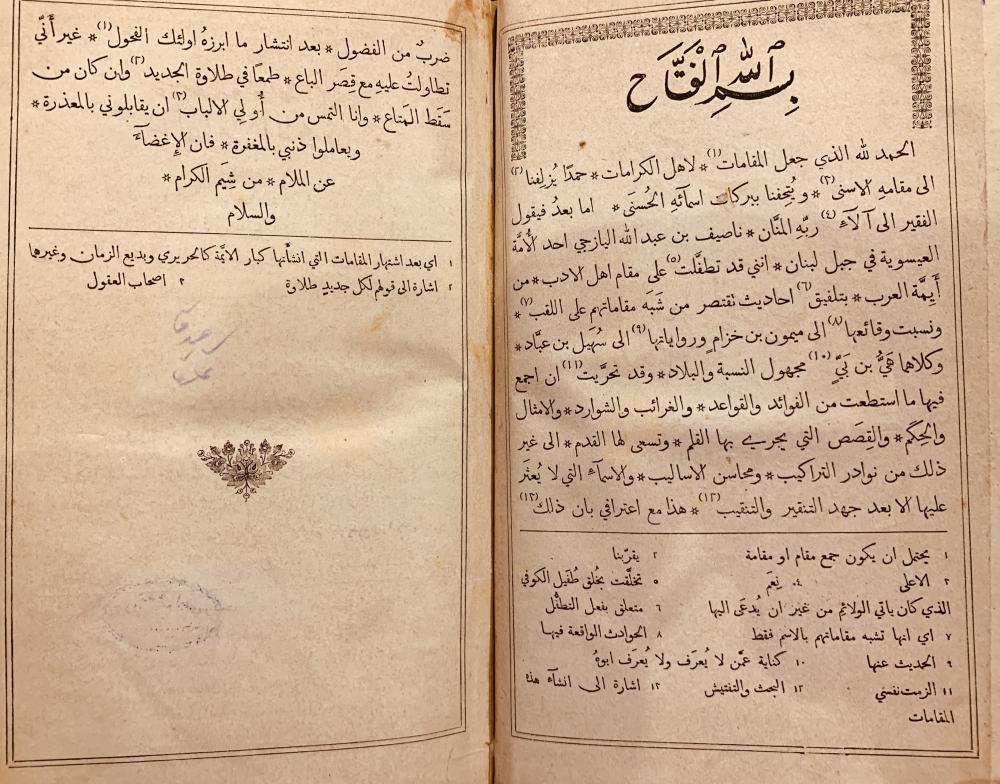 بسم الله الفتاح
الحمد لله الذي جعل المقامات (١) * لاهل الكرامات * حمدًا يُزلِفنا (٢)
الى مقامهِ الاسنى (٣) * ويُتحِفنا ببركات اسمآئهِ الحُسنَى * اما بعدُ فيقول
الفقير الى آلآءِ (٤) ربّهِ المنَّان * ناصيف بن عبد الله اليازجي احد الأُمَّة
العيسوية في جبل لبنان * انني قد تطفَّلت (٥) على مقام اهل الادب * من
أَيِمَّة العرب * بتلفيق (٦) احاديث تقتصر من شَبَه مقاماتهم على اللقب (٧) *
ونسبت وقائعها (٨) الى ميمون بن خزام ورواياتها (٩) الى سُهَيل بن عبَّاد *
وكلاهما هَيُّ بن بَيٍّ (١٠) مجهول النسبة والبلاد * وقد تحرَّيت (١١) ان اجمع
فيها ما استطعت من الفوائد والقواعد * والغرائب والشوارد * والامثال
والحِكَم * والقِصَص التي يجري بها القلم * وتسعى لها القدم * الى غير
ذلك من نوادر التراكيب * ومحاسن الاساليب * والاسمآء التي لا يُعثَر
عليها الا بعد جهد التنقير والتنقيب (١٢) * هذا مع اعترافي بان ذلك (١٣)
١ يحتمل ان يكون جمع مقام او مقامة ٢ يقرّبنا
٣ الاعلى ٤ نِعَم ٥ تخلَّقت بخُلق طُفَيل الكوفي
الذي كان ياتي الولائم من غير ان يُدعَى اليها ٦ متعلق بفعل التطفُّل
٧ اي انها تشبه مقاماتهم بالاسم فقط ٨ الحوادث الواقعة فيها
٩ الحديث عنها ١٠ كناية عمَّن لا يُعرَف ولا يُعرَف ابوهُ
١١ الزمت نفسي ١٢ البحث والتفتيش ١٣ اشارة الى انشآء هذه
المقامات
ضربٌ من الفضول * بعد انتشار ما ابرزهُ اولئك الفحول (١) * غير أَنّي
تطاولتُ عليهِ مع قصَر الباع * طمعًا في طلاوة الجديد (٢) وان كان من
سَقَط المَتاع * وانا التمس من أُولي الالباب (٣) ان يقابلوني بالمعذرة *
ويعاملوا ذنبي بالمغفرة * فان الإِغضآءَ
عن الملام * من شِيَم الكرام *
والسلام
١ اي بعد اشتهار المقامات التي انشأَتها كبار الائِمَّة كالحريري وبديع الزمان وغيرهما
٢ اشارة الى قولهم لكل جديدٍ طلاوة ٣ اصحاب العقول